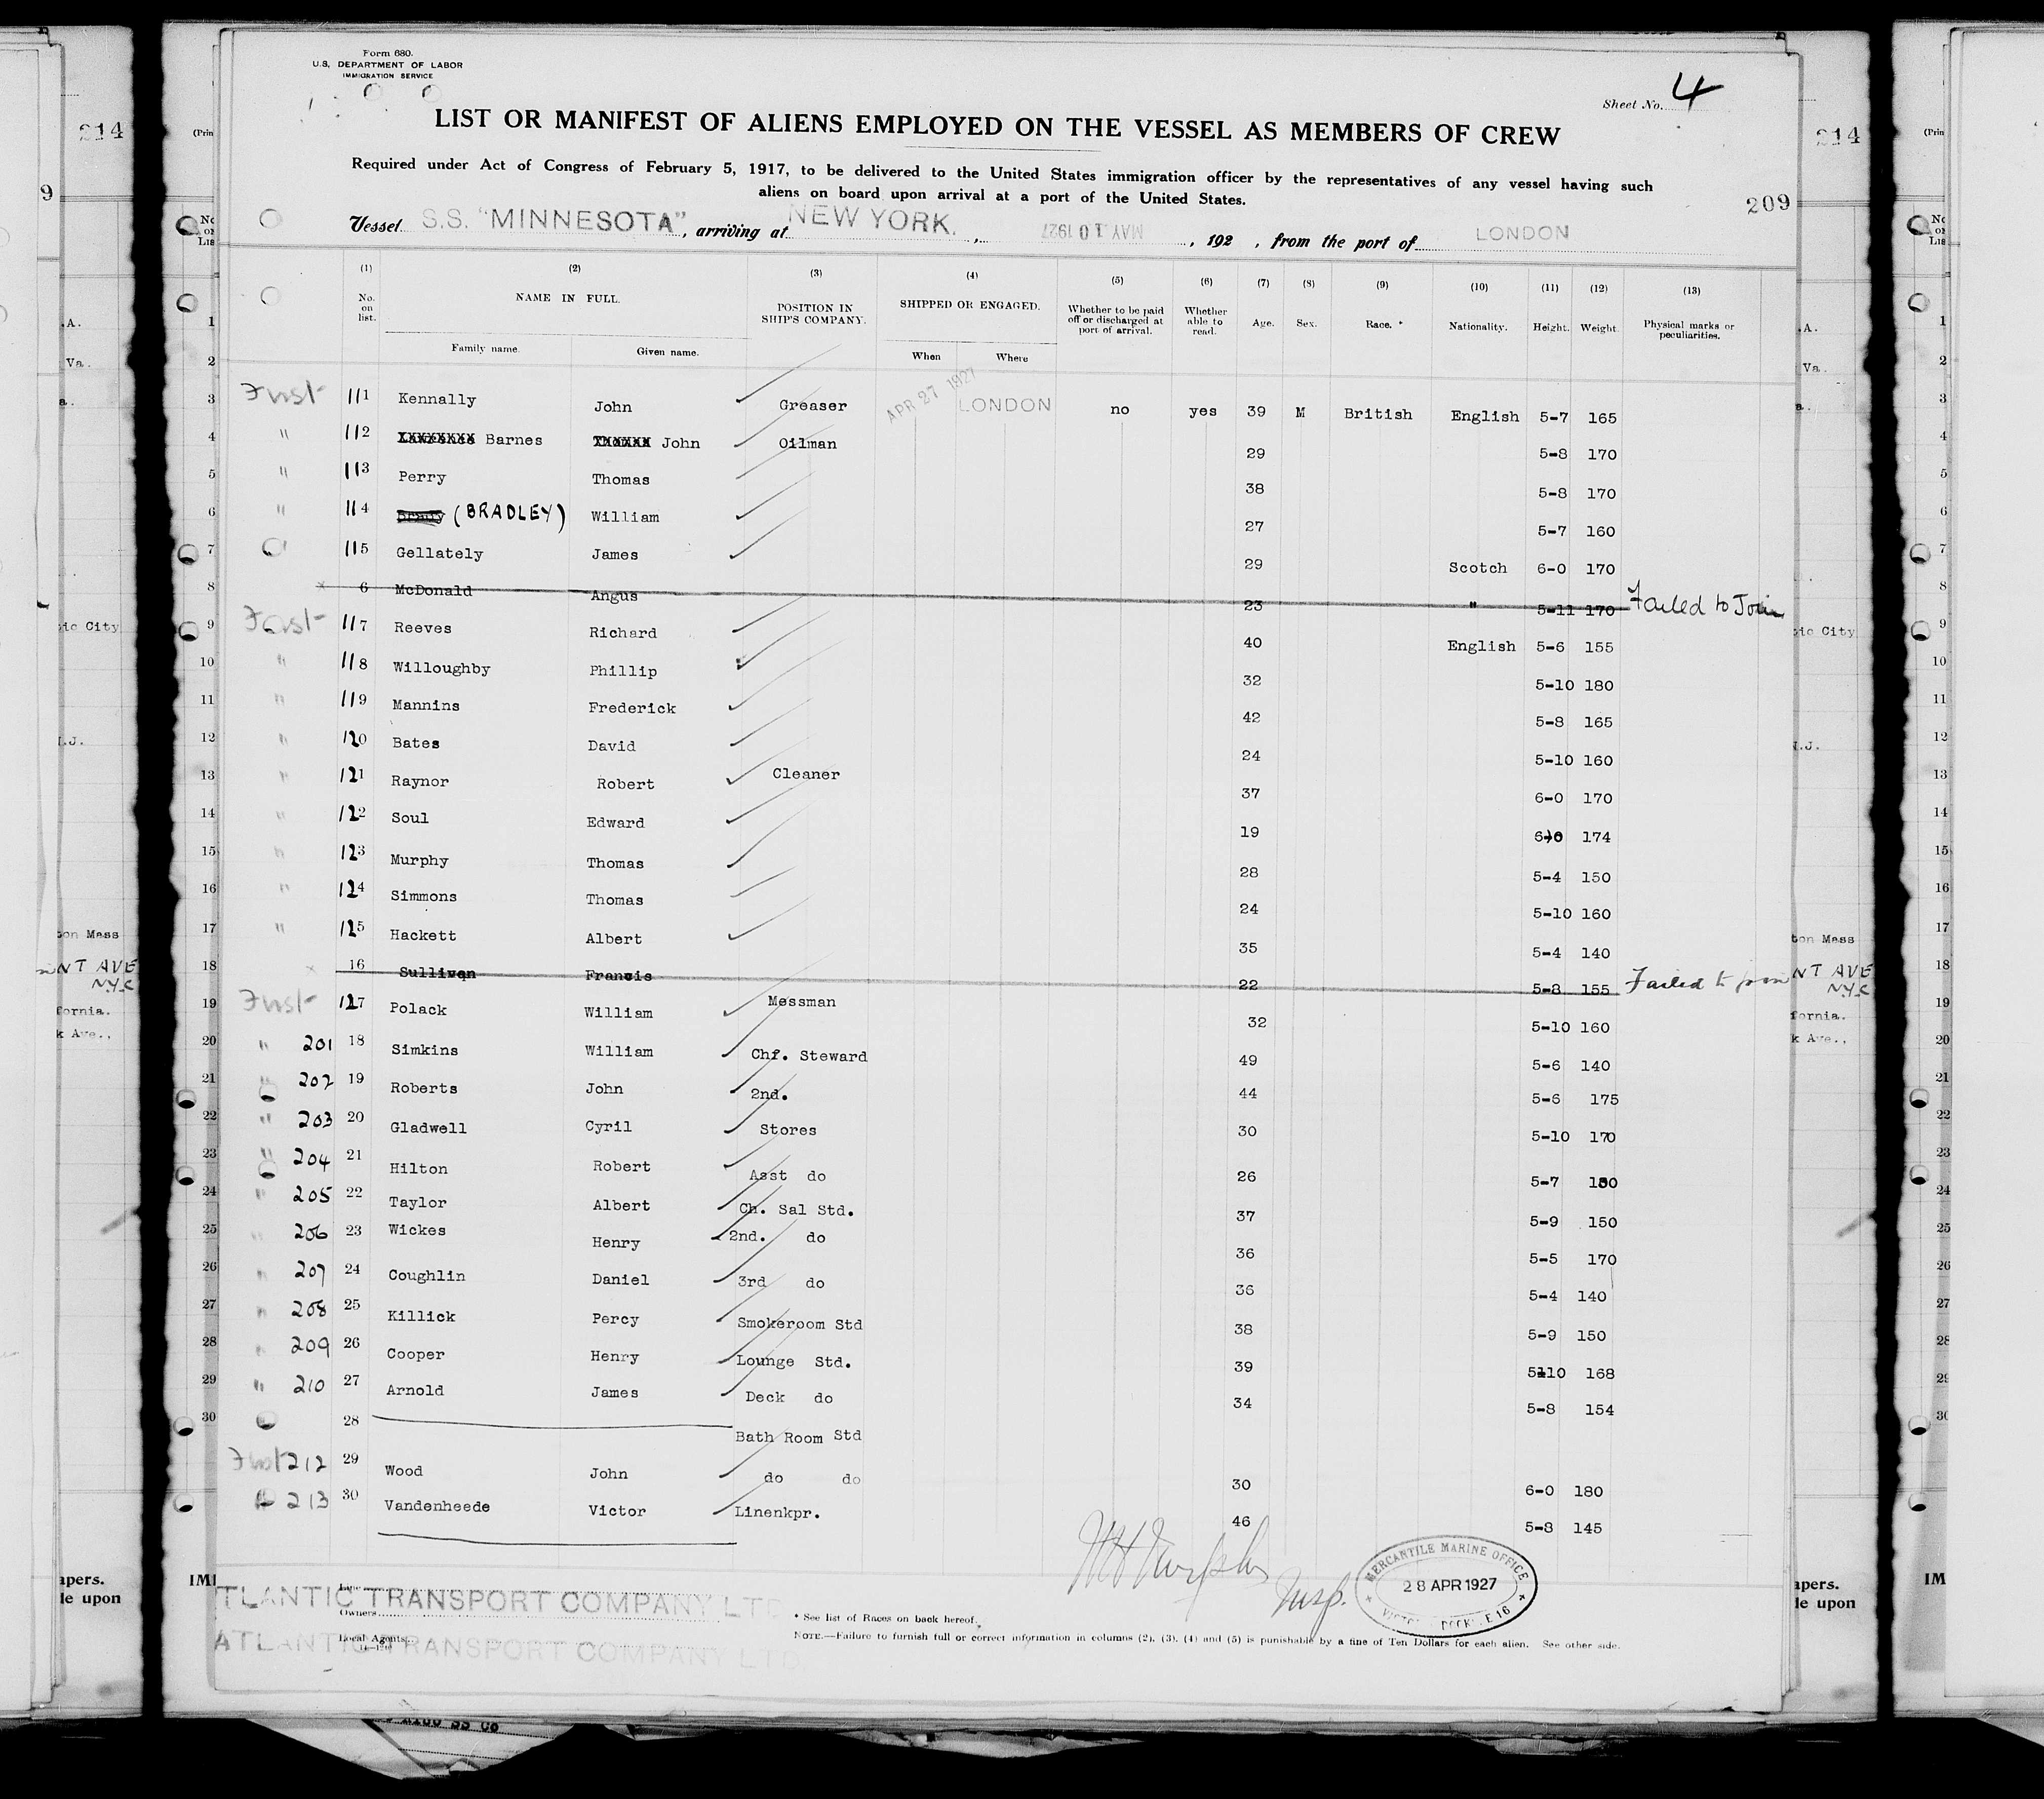 Form 680.
U.S. DEPARTMENT OF LABOR
IMMIGRATION SERVICE
Sheet No. 4
LIST OR MANIFEST OF ALIENS EMPLOYED ON THE VESSEL AS MEMBERS OF CREW
Required under Act of Congress of February 5, 1917, to be delivered to the United States immigration officer by the representatives of any vessel having such
aliens on board upon arrival at a port of the United States.
209
Vessel S.S. "MINNESOTA", arriving at NEW YORK. , MAY 10 1927 , 192 , from the port of LONDON
(1) (2) (3) (4) (5) (6) (7) (8) (9) (10) (11) (12) (13)
No. on list. NAME IN FULL. POSITION IN SHIP'S COMPANY. SHIPPED OR ENGAGED. Whether to be paid off or discharged at port of arrival. Whether able to read. Age. Sex. Race. * Nationality. Height. Weight. Physical marks or peculiarities.
Family name. Given name. When Where
First 111 Kennally John Greaser APR 27 1927 LONDON no yes 39 M British English 5-7 165
" 112 Barnes John Oilman 29 5-8 170
" 113 Perry Thomas 38 5-8 170
" 114 (BRADLEY) William 27 5-7 160
115 Gellately James 29 Scotch 6-0 170
x 6 McDonald Angus 23 " 5-11 170 Failed to Join
First 117 Reeves Richard 40 English 5-6 155
" 118 Willoughby Phillip 32 5-10 180
" 119 Mannins Frederick 42 5-8 165
" 120 Bates David 24 5-10 160
" 121 Raynor Robert Cleaner 37 6-0 170
" 122 Soul Edward 19 6-0 174
" 123 Murphy Thomas 28 5-4 150
" 124 Simmons Thomas 24 5-10 160
" 125 Hackett Albert 35 5-4 140
x 16 Sullivan Francis 22 5-8 155 Failed to join
First 127 Polack William Messman 32 5-10 160
" 201 18 Simkins William Chf. Steward 49 5-6 140
" 202 19 Roberts John 2nd. 44 5-6 175
" 203 20 Gladwell Cyril Stores 30 5-10 170
" 204 21 Hilton Robert Asst do 26 5-7 180
" 205 22 Taylor Albert Ch. Sal Std. 37 5-9 150
" 206 23 Wickes Henry 2nd. do 36 5-5 170
" 207 24 Coughlin Daniel 3rd do 36 5-4 140
" 208 25 Killick Percy Smokeroom Std 38 5-9 150
" 209 26 Cooper Henry Lounge Std. 39 5-10 168
" 210 27 Arnold James Deck do 34 5-8 154
28 Bath Room Std
First 212 29 Wood John do do 30 6-0 180
" 213 30 Vandenheede Victor Linenkpr. 46 5-8 145
Insp.
MERCANTILE MARINE OFFICE
28 APR 1927
E 16
ATLANTIC TRANSPORT COMPANY LTD
Owners
Local Agents
ATLANTIC TRANSPORT COMPANY LTD.
* See list of Races on back hereof.
NOTE.—Failure to furnish full or correct information in columns (2), (3), (4) and (5) is punishable by a fine of Ten Dollars for each alien. See other side.
9
214
.A.
Va.
a.
ic City
.J.
on Mass
NT AVE
NYC
fornia.
k Ave.,
apers.
le upon
(Prin
1
2
3
4
5
6
7
8
9
10
11
12
13
14
15
16
17
18
19
20
21
22
23
24
25
26
27
28
29
30
IM
214
.A.
Va.
ic City
.J.
ton Mass
NT AVE
NYC
fornia.
k Ave.,
apers.
le upon
(Prin
1
2
3
4
5
6
7
8
9
10
11
12
13
14
15
16
17
18
19
20
21
22
23
24
25
26
27
28
29
30
IM